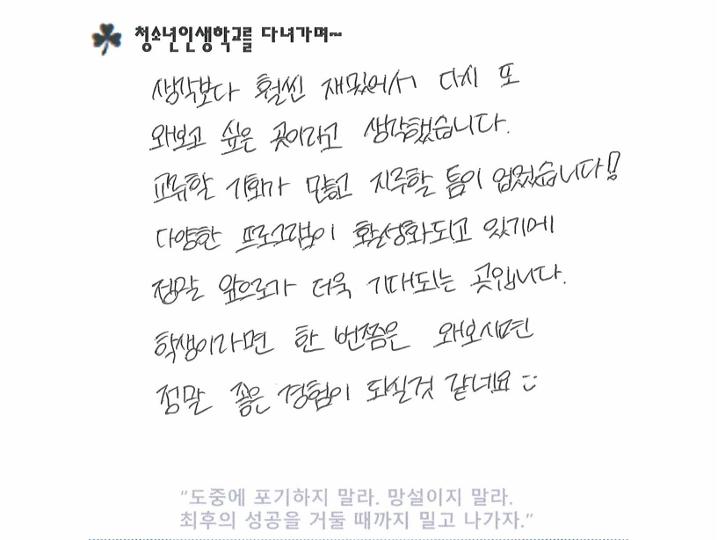 청소년인생학교를 다녀가며~
생각보다 훨씬 재밌어서 다시 또
와보고 싶은 곳이라고 생각했습니다.
교류할 기회가 많고 지루할 틈이 없었습니다!
다양한 프로그램이 활성화되고 있기에
정말 앞으로가 더욱 기대되는 곳입니다.
학생이라면 한 번쯤은 와보시면
정말 좋은 경험이 되실것 같네요
"도중에 포기하지 말라. 망설이지 말라.
최후의 성공을 거둘 때까지 밀고 나가자."